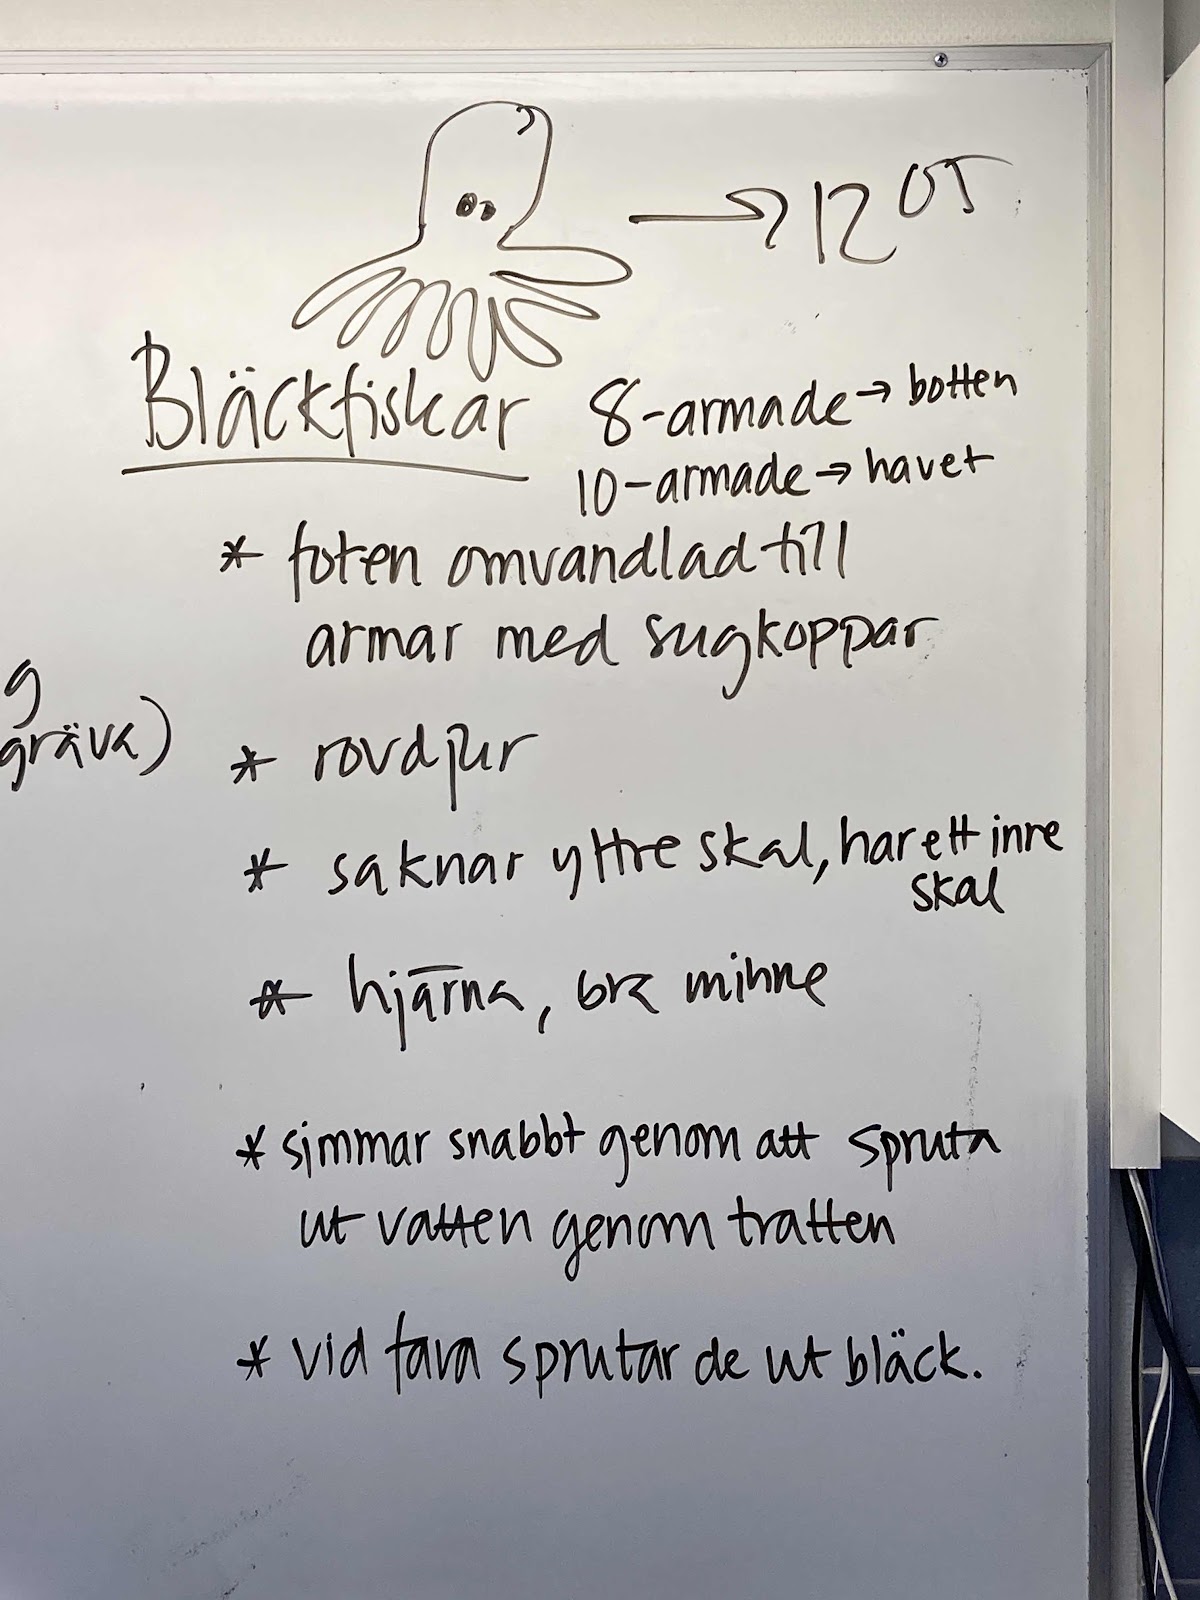 → 12 05
Bläckfiskar
8-armade → botten
10-armade → havet
* foten omvandlad till
armar med sugkoppar
g
gräva)
* rovdjur
* saknar yttre skal, har ett inre
skal
* hjärna, bra minne
* simmar snabbt genom att spruta
ut vatten genom tratten
* vid fara sprutar de ut bläck.